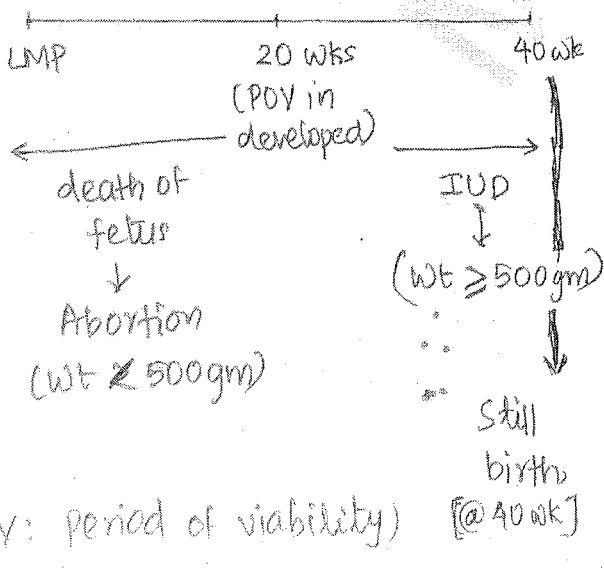 LMP
20 wks
40 wk
(POV in
developed)
death of
fetus
↓
Abortion
(Wt < 500gm)
IUD
↓
(Wt ⩾ 500gm)
Still
birth
[@ 40 wk]
V: period of viability)